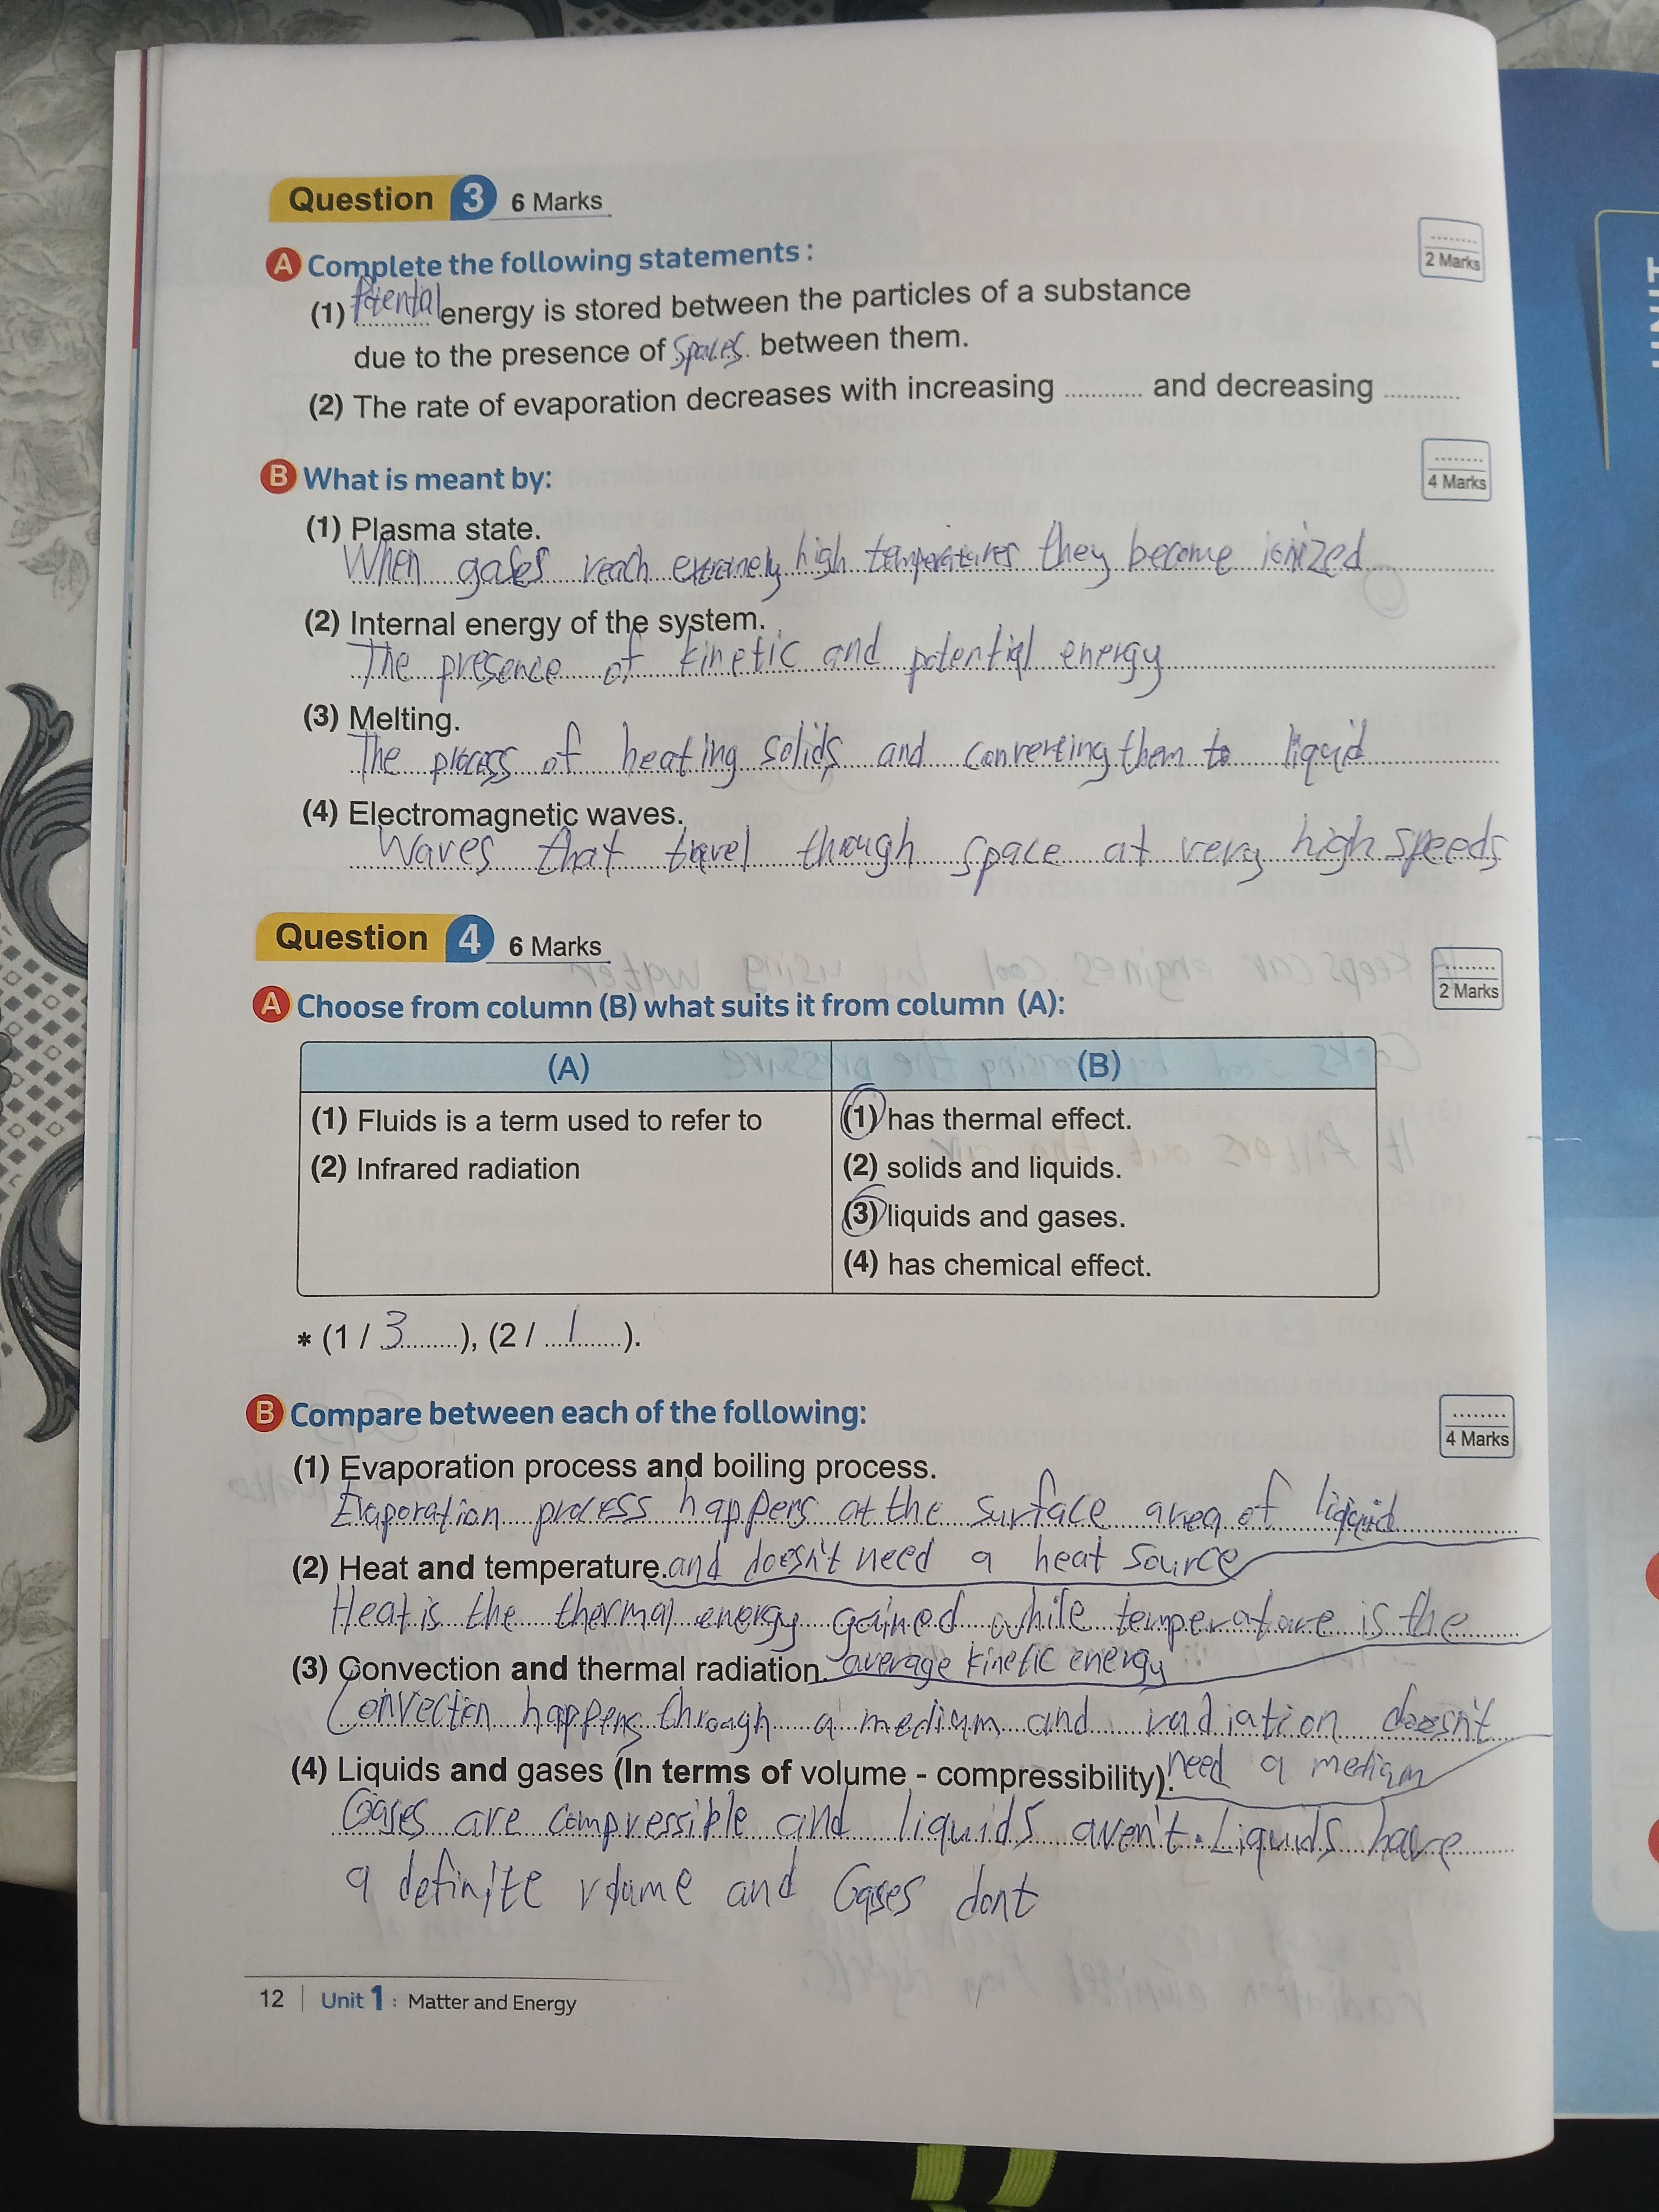 Question 3 6 Marks
A Complete the following statements :
........
2 Marks
(1) Potental energy is stored between the particles of a substance
due to the presence of spaces. between them.
(2) The rate of evaporation decreases with increasing ............ and decreasing ............
B What is meant by:
........
4 Marks
(1) Plasma state.
When gases reach extremely high temperatures they become ionized
(2) Internal energy of the system.
The presence of kinetic and potential energy
(3) Melting.
The process of heating solids and converting them to liquid
(4) Electromagnetic waves.
Waves that travel though space at very high speeds
Question 4 6 Marks
A Choose from column (B) what suits it from column (A):
........
2 Marks
(A) (B)
(1) Fluids is a term used to refer to (1) has thermal effect.
(2) Infrared radiation (2) solids and liquids.
(3) liquids and gases.
(4) has chemical effect.
* (1 / 3 ), (2 / 1 ).
B Compare between each of the following:
........
4 Marks
(1) Evaporation process and boiling process.
Evaporation process happens at the surface area of liquid
(2) Heat and temperature. and doesn't need a heat source
Heat is the thermal energy gained while temperature is the
(3) Convection and thermal radiation. average kinetic energy
Convection happens through a medium and radiation doesn't
(4) Liquids and gases (In terms of volume - compressibility). need a medium
Gases are compressible and liquids aren't. Liquids have
a definite volume and Gases dont
12 | Unit 1 : Matter and Energy